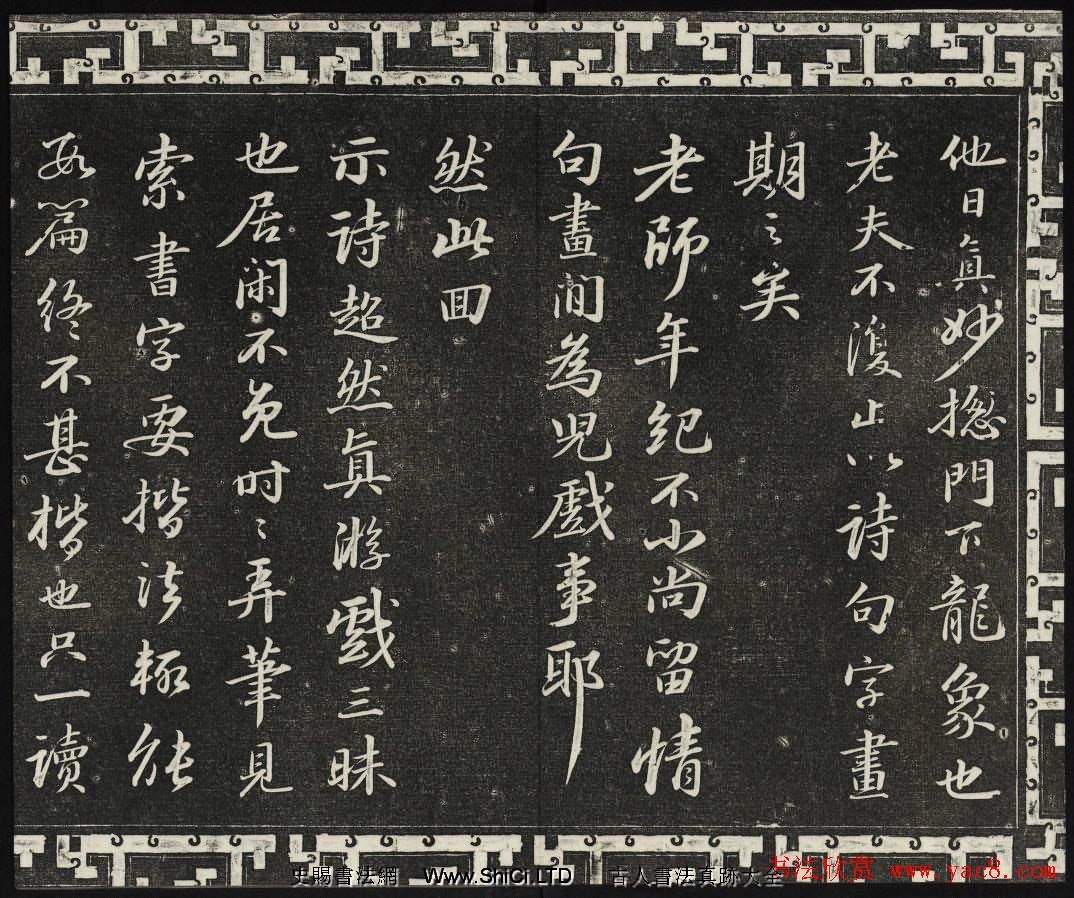 他日真妙揔門下龍象也
老夫不復止以詩句字畫
期之矣
老師年紀不小尚留情
句畫間為兒戲事耶
然此回
示詩超然真游戲三昧
也居閑不免時〻弄筆見
索書字要楷法輒往
數篇終不甚楷也只一讀
史賜書法網 www.ShiCi.LTD 古人書法真跡大全
书法欣赏 www.yac8.com